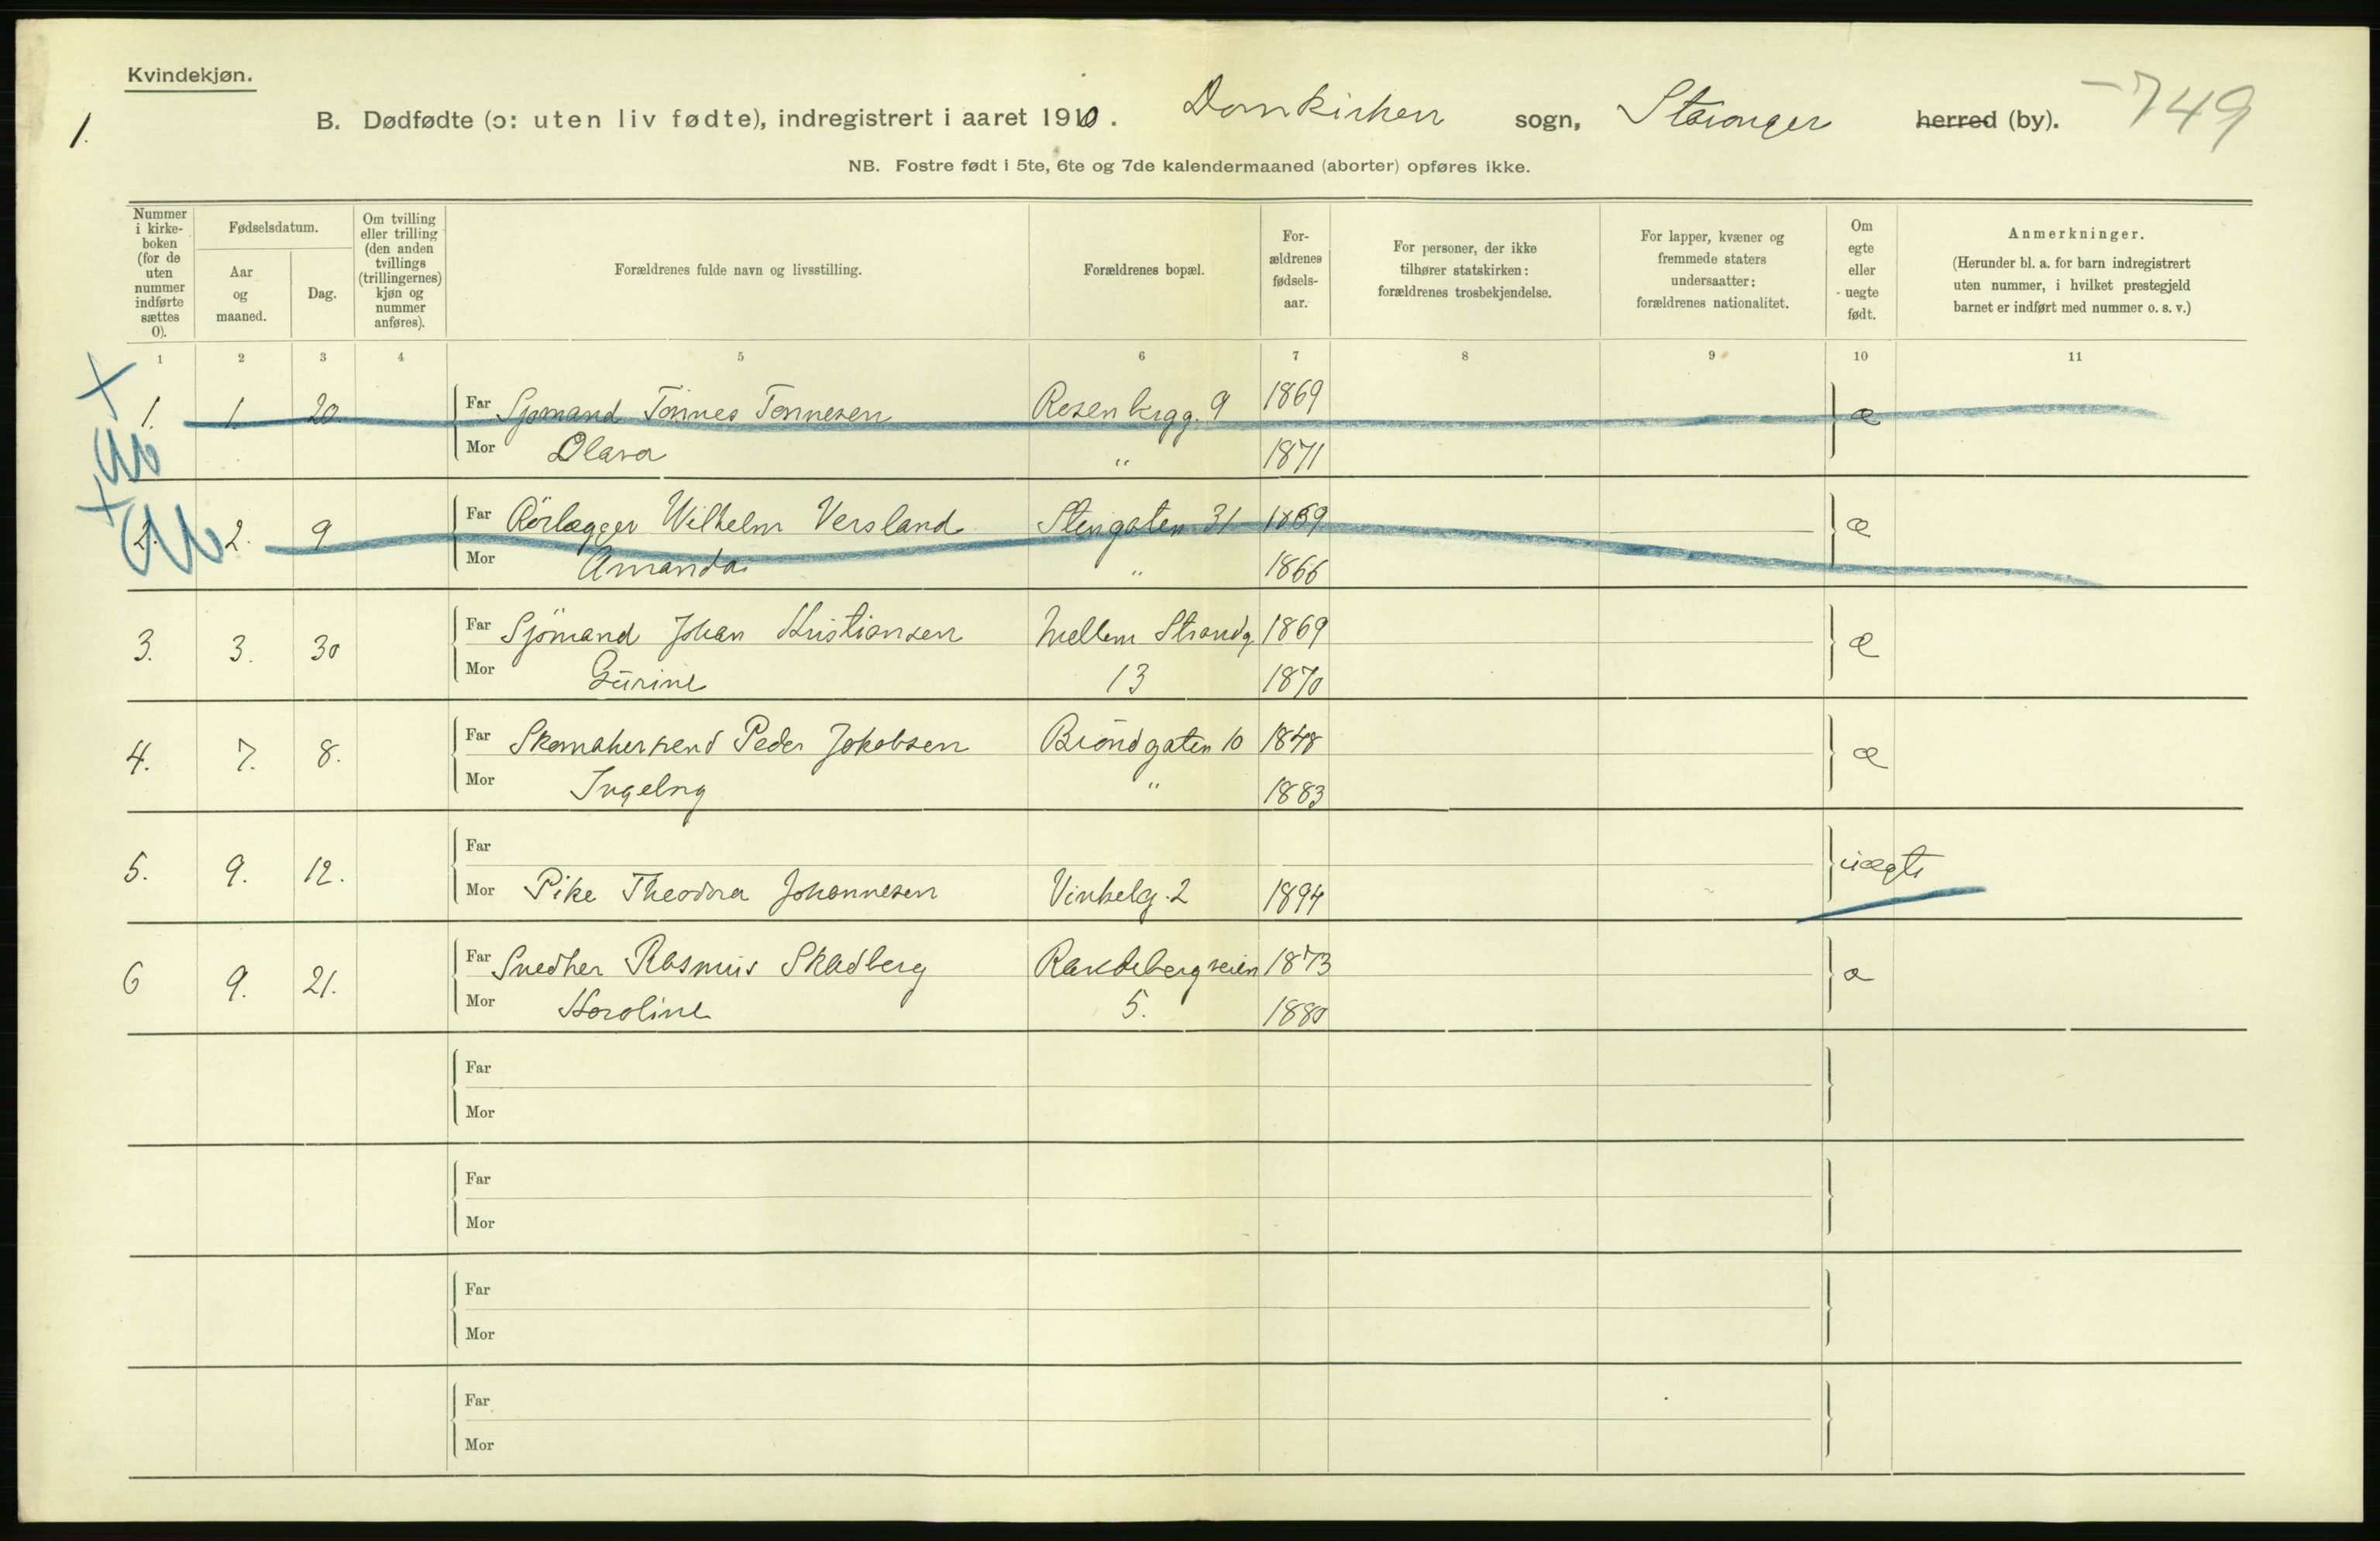 Kvindekjøn.
1.
B. Dødfødte (ɔ: uten liv fødte), indregistrert i aaret 1910. Domkirken sogn, Stavanger herred (by). -749
NB. Fostre født i 5te, 6te og 7de kalendermaaned (aborter) opføres ikke.
Nummer i kirke-boken (for de uten nummer indførte sættes 0).
Fødselsdatum.
Aar og maaned.
Dag.
Om tvilling eller trilling (den anden tvillings (trillingernes) kjøn og nummer anføres).
Forældrenes fulde navn og livsstilling.
Forældrenes bopæl.
For-ældrenes fødsels-aar.
For personer, der ikke tilhører statskirken: forældrenes trosbekjendelse.
For lapper, kvæner og fremmede staters undersaatter: forældrenes nationalitet.
Om egte eller uegte født.
Anmerkninger.
(Herunder bl. a. for barn indregistrert uten nummer, i hvilket prestegjeld barnet er indført med nummer o. s. v.)
1 2 3 4 5 6 7 8 9 10 11
1. 1. 20. Far Sjømand Tönnes Tonnesen Rosenbergg. 9 1869 æ
Mor Olava " 1871
2. 2. 9. Far Rörlægger Wilhelm Versland Stengaten 31 1869 æ
Mor Amanda " 1866
3. 3. 30 Far Sjömand Johan Kristiansen Mellem Strandg 1869 æ
Mor Gurine 13 1870
4. 7. 8. Far Skomakersvend Peder Jakobsen Bröndgaten 10 1848 æ
Mor Ingeborg " 1883
5. 9. 12. Far uægte
Mor Pike Theodora Johannesen Vinkelg. 2 1894
6 9. 21. Far Snedker Rasmus Skadberg Randebergveien 1873 æ
Mor Karoline 5. 1880
Far
Mor
Far
Mor
Far
Mor
Far
Mor